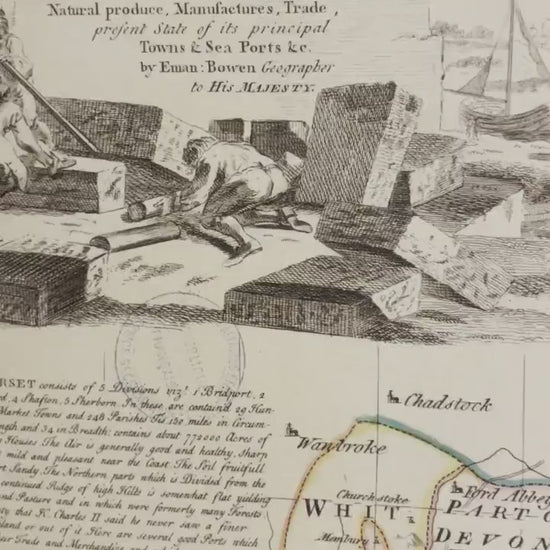 Natural produce, Manufactures, Trade,
present State of its principal
Towns & Sea Ports &c.
by Eman: Bowen Geographer
to His MAJESTY.
RSET consists of 5 Divisions viz! 1 Bridport, 2
rd, 4 Shafton, 5 Sherborn. In these are contain'd 29 Hun-
Market Towns and 248 Parishes Tis 150 miles in Circum-
ngth and 34 in Breadth: contains about 772000 Acres of
Houses The Air is generally good and healthy, sharp
mild and pleasant near the Coast. The Soil fruitfull
rt Sandy. The Northern parts which is Divided from the
continued Ridge of high Hills is somewhat flat yielding
nd Pasture and in which were formerly many Forests
ty that K. Charles II said he never saw a finer
land or out of it Here are several good Ports which
ur Trade and Merchandize and
Chadstock
Wanbroke
Churchstoke
Ford Abbey
WHIT
PART O
Membury
DEVON